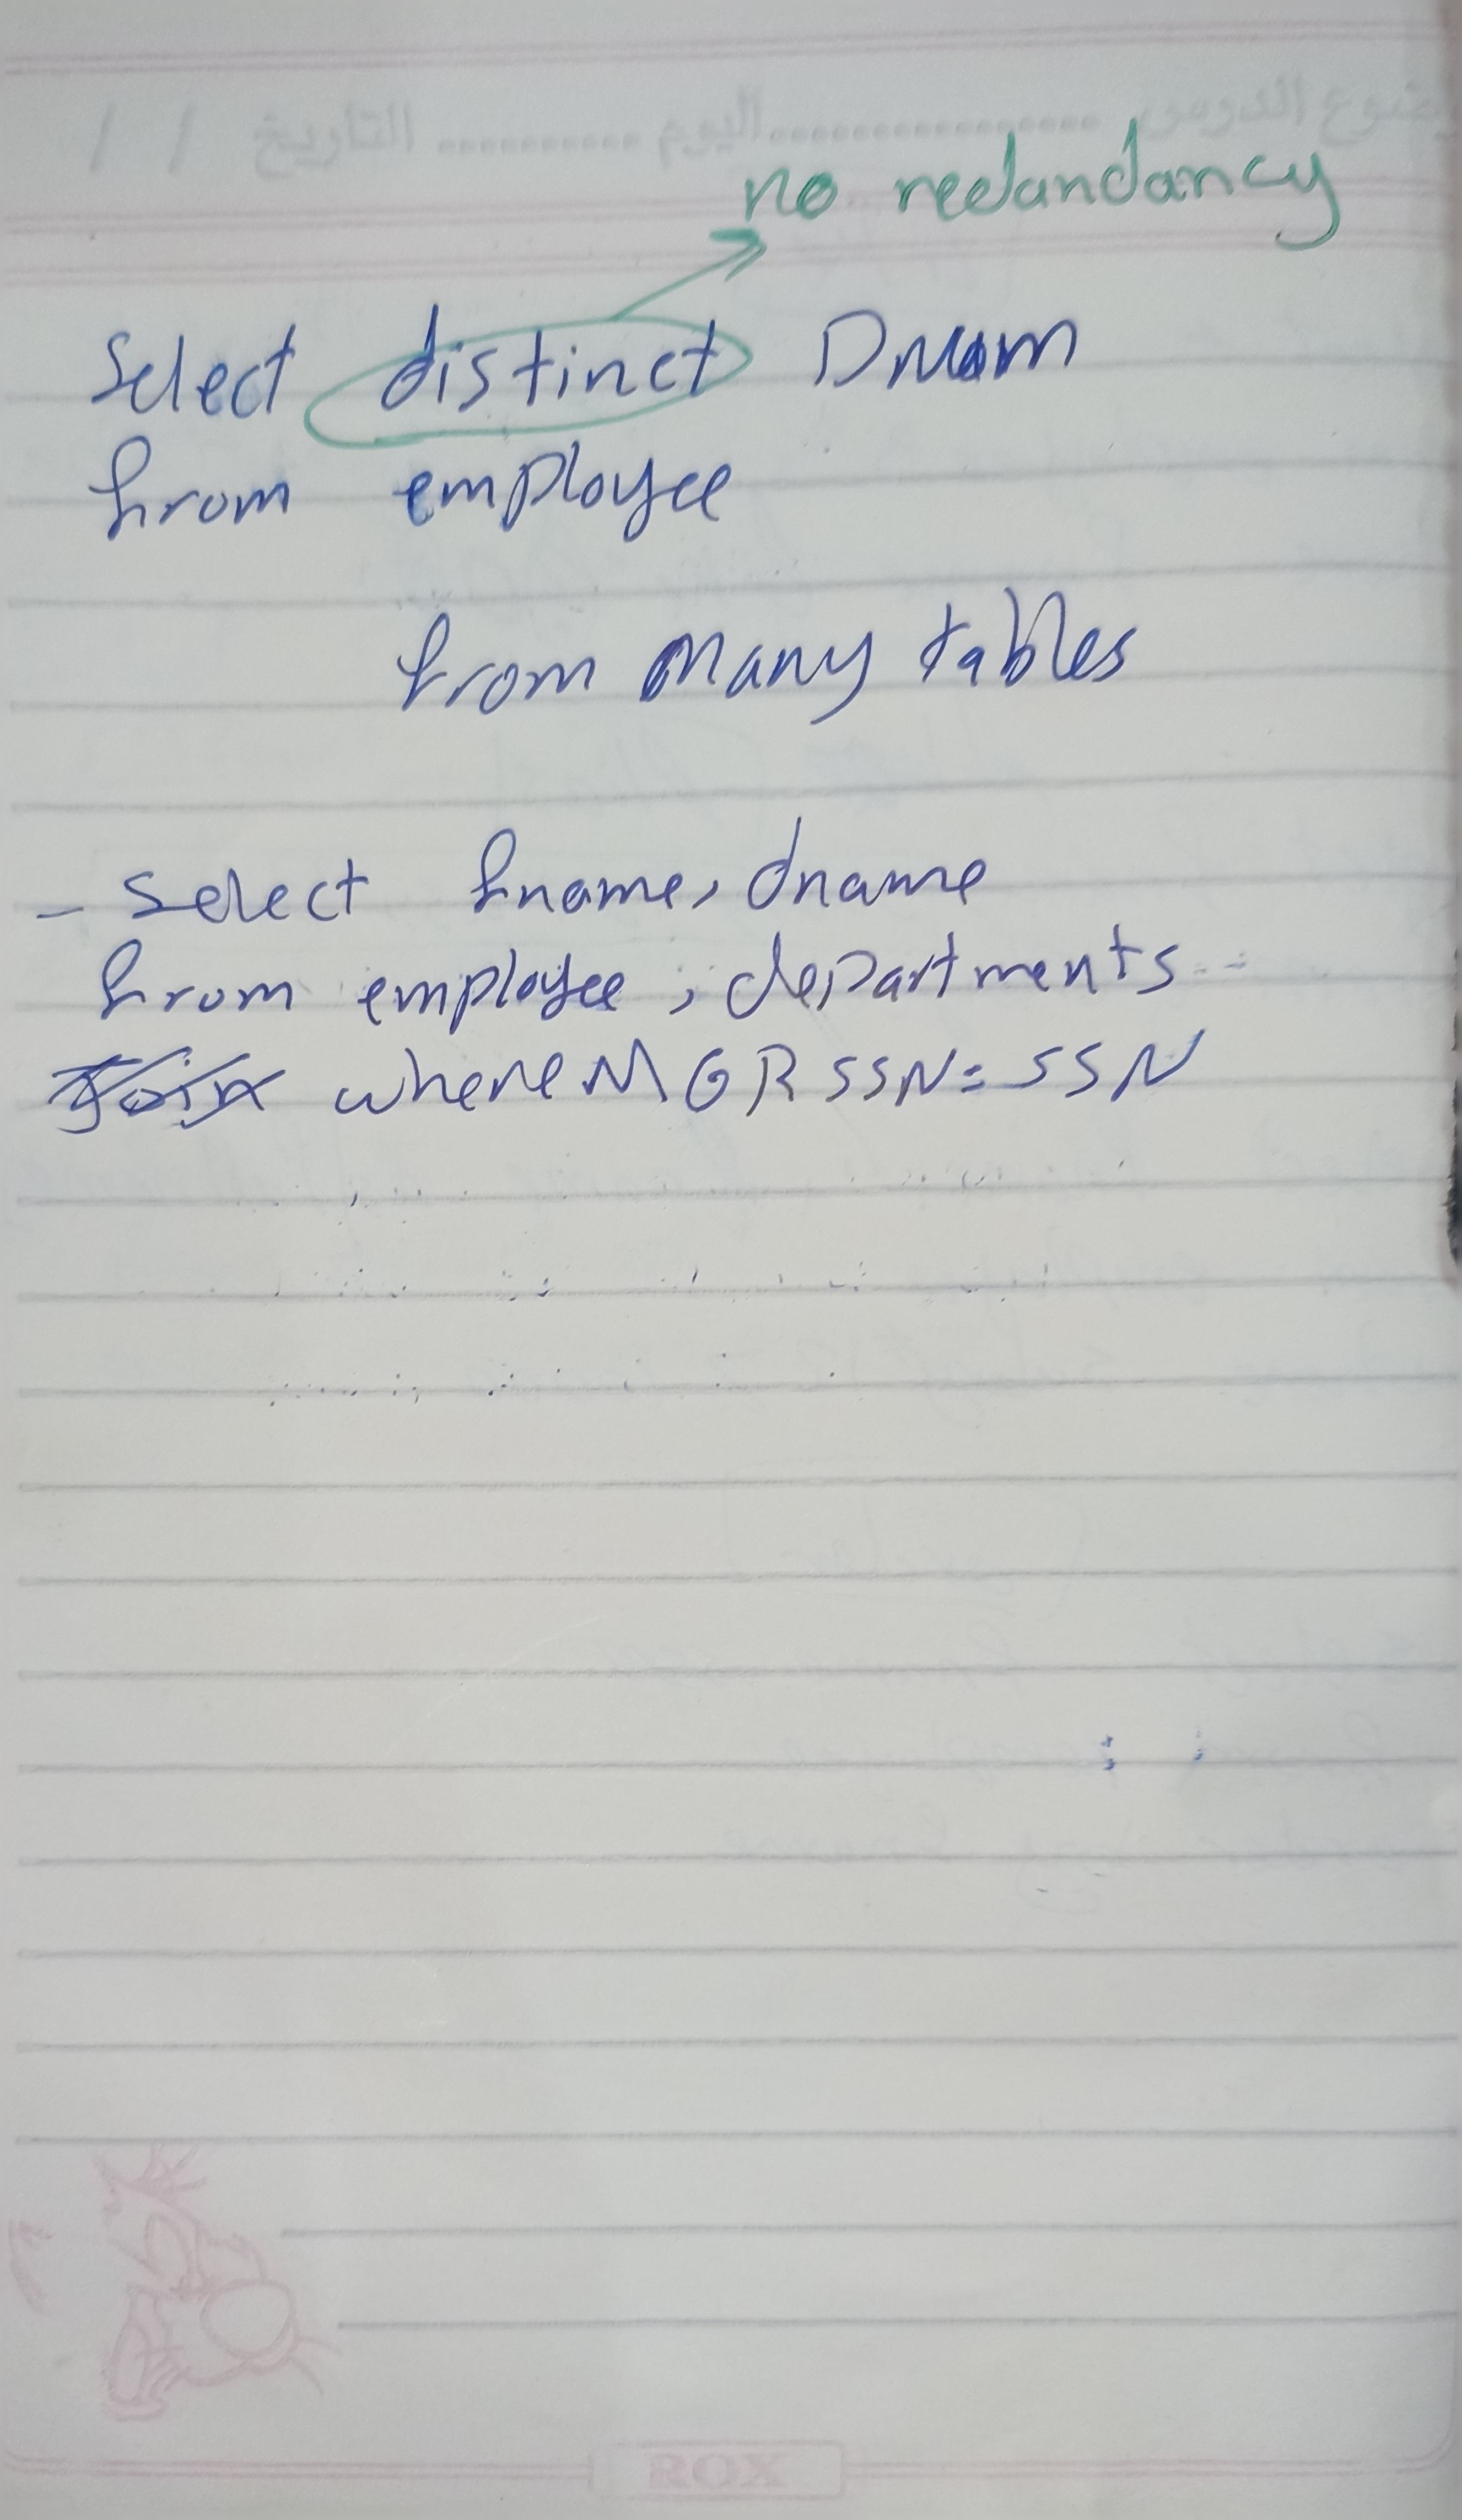 no redandancy
Select distinct Dnum
from employee
from many tables
- select fname, dname
from employee, departments
Join where MGRSSN = SSN
ROX